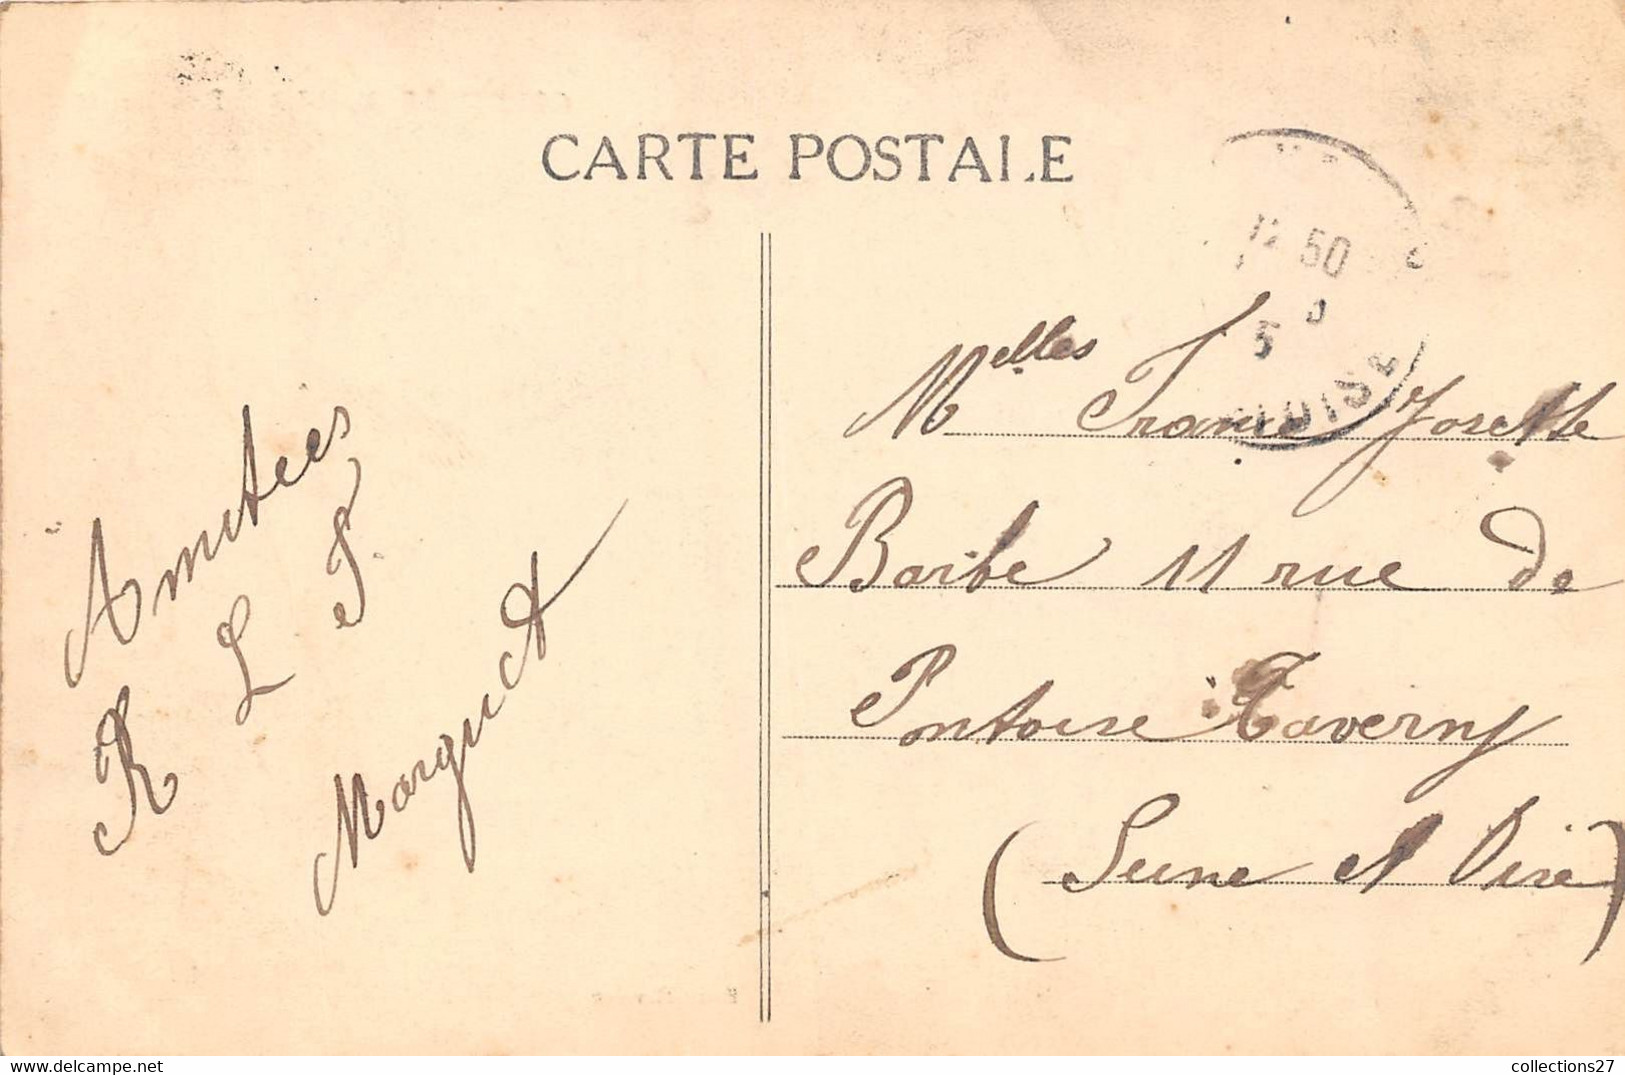 CARTE POSTALE
Amitiées
R L F
Marguet
50
5
OISE
Melles France Josette
Barbe 11 rue de
Pontoise Taverny
(Seine et Oise)
collections27